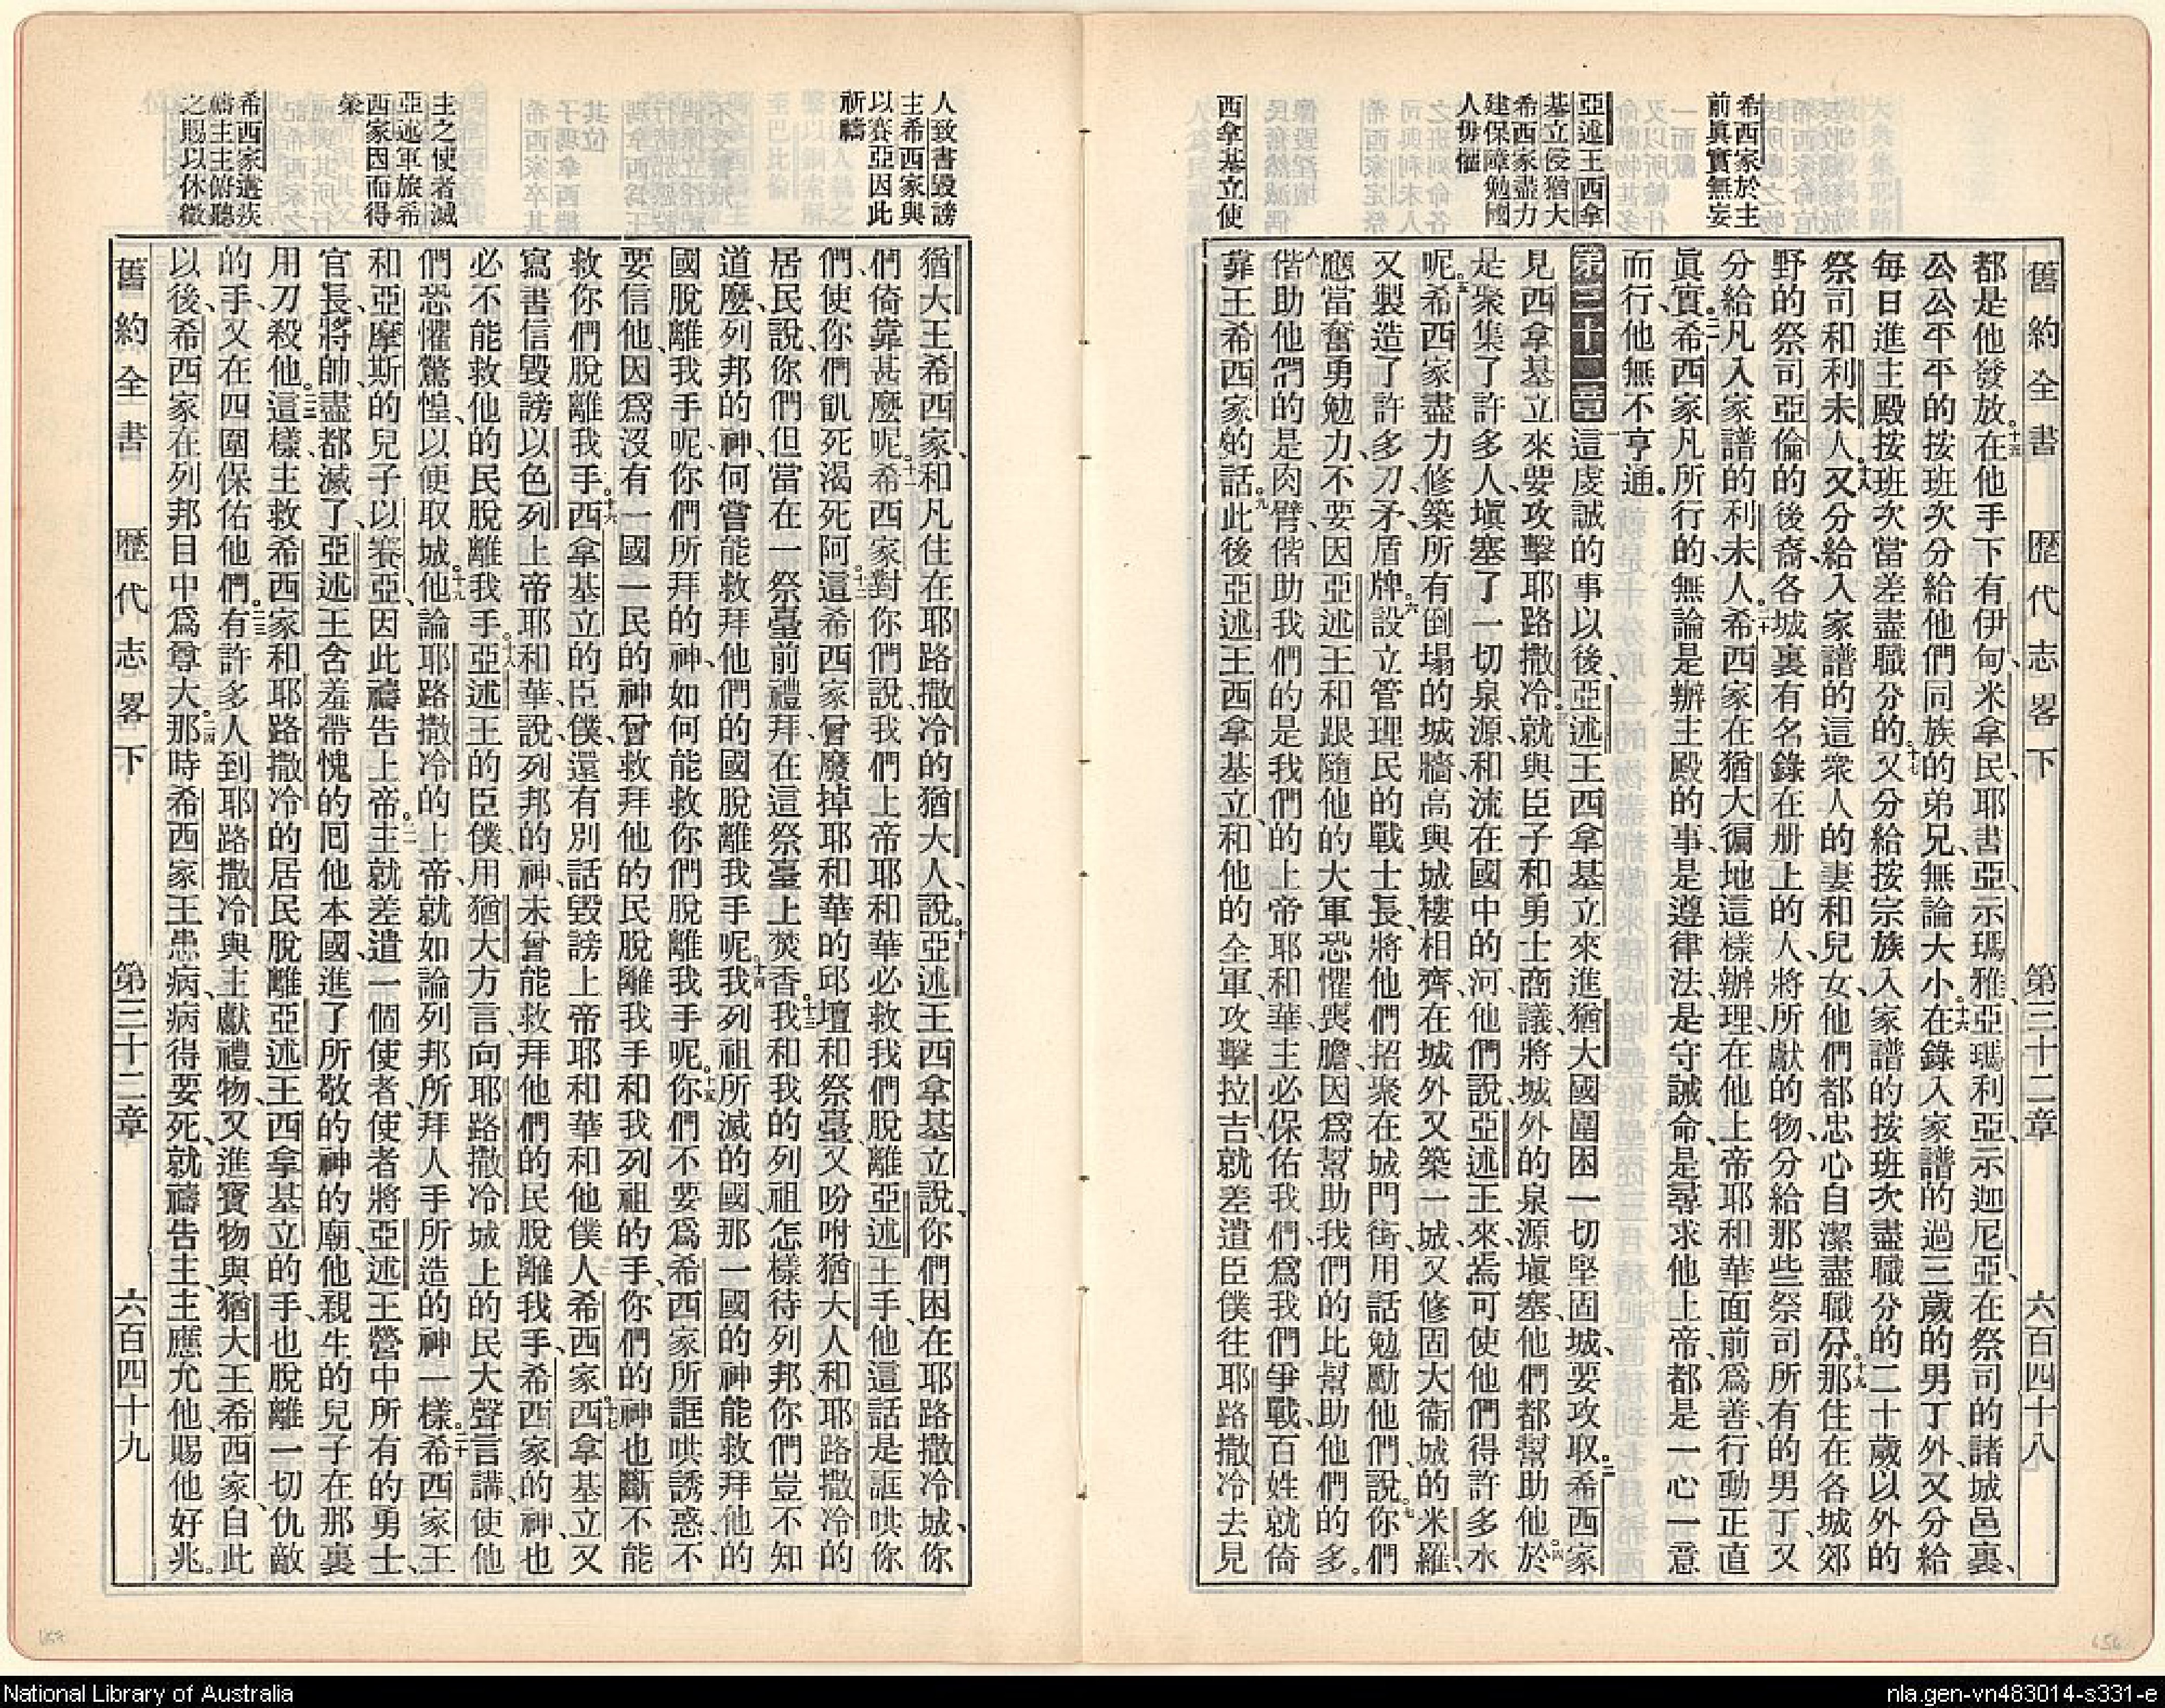 舊約全書 歷代志畧下 第三十二章 六百四十八
希西家於主
前眞實無妄
亞述王西拿
基立侵猶大
希西家盡力
建保障勉國
人毋懼
西拿基立使
都是他發放。十五在他手下有伊甸、米拿民、耶書亞、示瑪雅、亞瑪利亞、示迦尼亞、在祭司的諸城邑裏、
公公平平的按班次分給他們同族的弟兄、無論大小。十六在錄入家譜的過三歲的男丁外、又分給
每日進主殿按班次當差盡職分的。十七又分給按宗族入家譜的祭司按班次盡職分的二十歲以外的
祭司和利未人。十八又分給入家譜的這衆人的妻和兒女、他們都忠心自潔盡職分。十九那住在各城郊
野的祭司亞倫的後裔、各城裏有名錄在册上的人、將所獻的物、分給那些祭司所有的男丁、又
分給凡入家譜的利未人。二十希西家在猶大徧地這樣辦理、在他上帝耶和華面前爲善、行動正直
眞實。二一希西家凡所行的、無論是辦主殿的事、是遵律法、是守誡命、是尋求他上帝、都是一心一意
而行、他無不亨通。
第三十二章 一這虔誠的事以後、亞述王西拿基立來進猶大國、圍困一切堅固城、要攻取。二希西家
見西拿基立來、要攻擊耶路撒冷、三就與臣子和勇士商議、將城外的泉源塡塞、他們都幫助他。四於
是聚集了許多人、塡塞了一切泉源、和流在國中的河、他們說、亞述王來、焉可使他們得許多水
呢。五希西家盡力修築所有倒塌的城牆、高與城樓相齊、在城外又築一城、又修固大衞城的米羅、
又製造了許多刀矛、盾牌。六設立管理民的戰士長、將他們招聚在城門街、用話勉勵他們、說。七你們
應當奮勇勉力、不要因亞述王和跟隨他的大軍恐懼喪膽、因爲幫助我們的、比幫助他們的多。
八偕助他們的是肉臂、偕助我們的是我們的上帝耶和華、主必保佑我們、爲我們爭戰、百姓就倚
靠王希西家的話。九此後亞述王西拿基立、和他的全軍攻擊拉吉、就差遣臣僕往耶路撒冷去見
人致書毀謗
主希西家與
以賽亞因此
祈禱
主之使者滅
亞述軍旅希
西家因而得
榮
希西家遘疾
禱主主俯聽
之賜以休徵
猶大王希西家、和凡住在耶路撒冷的猶大人、說。十亞述王西拿基立說、你們困在耶路撒冷城、你
們倚靠甚麼呢。十一希西家對你們說、我們上帝耶和華必救我們脫離亞述王手、他這話是誆哄你
們、使你們飢死渴死阿。十二這希西家曾廢掉耶和華的邱壇和祭臺、又吩咐猶大人和耶路撒冷的
居民說、你們但當在一祭臺前禮拜、在這祭臺上焚香。十三我和我的列祖怎樣待列邦、你們豈不知
道麼、列邦的神、何嘗能救拜他們的國脫離我手呢。十四我列祖所滅的國、那一國的神能救拜他的
國脫離我手呢、你們所拜的神、如何能救你們脫離我手呢。十五你們不要爲希西家所誆哄誘惑、不
要信他、因爲沒有一國一民的神曾救拜他的民脫離我手和我列祖的手、你們的神也斷不能
救你們脫離我手。十六西拿基立的臣僕、還有別話毀謗上帝耶和華和他僕人希西家。十七西拿基立又
寫書信毀謗以色列上帝耶和華、說列邦的神、未曾能救拜他們的民脫離我手、希西家的神、也
必不能救他的民脫離我手。十八亞述王的臣僕、用猶大方言、向耶路撒冷城上的民大聲言講、使他
們恐懼驚惶、以便取城。十九他論耶路撒冷的上帝、就如論列邦所拜人手所造的神一樣。二十希西家王
和亞摩斯的兒子以賽亞、因此禱告上帝。二一主就差遣一個使者、使者將亞述王營中所有的勇士、
官長、將帥、盡都滅了、亞述王含羞帶愧的回他本國、進了所敬的神的廟、他親生的兒子在那裏
用刀殺他。二二這樣、主救希西家和耶路撒冷的居民脫離亞述王西拿基立的手、也脫離一切仇敵
的手、又在四圍保佑他們。二三有許多人到耶路撒冷與主獻禮物、又進寶物與猶大王希西家、自此
以後、希西家在列邦目中爲尊大。二四那時希西家王患病、病得要死、就禱告主、主應允他、賜他好兆。
舊約全書 歷代志畧下 第三十二章 六百四十九
National Library of Australia
nla.gen-vn483014-s331-e